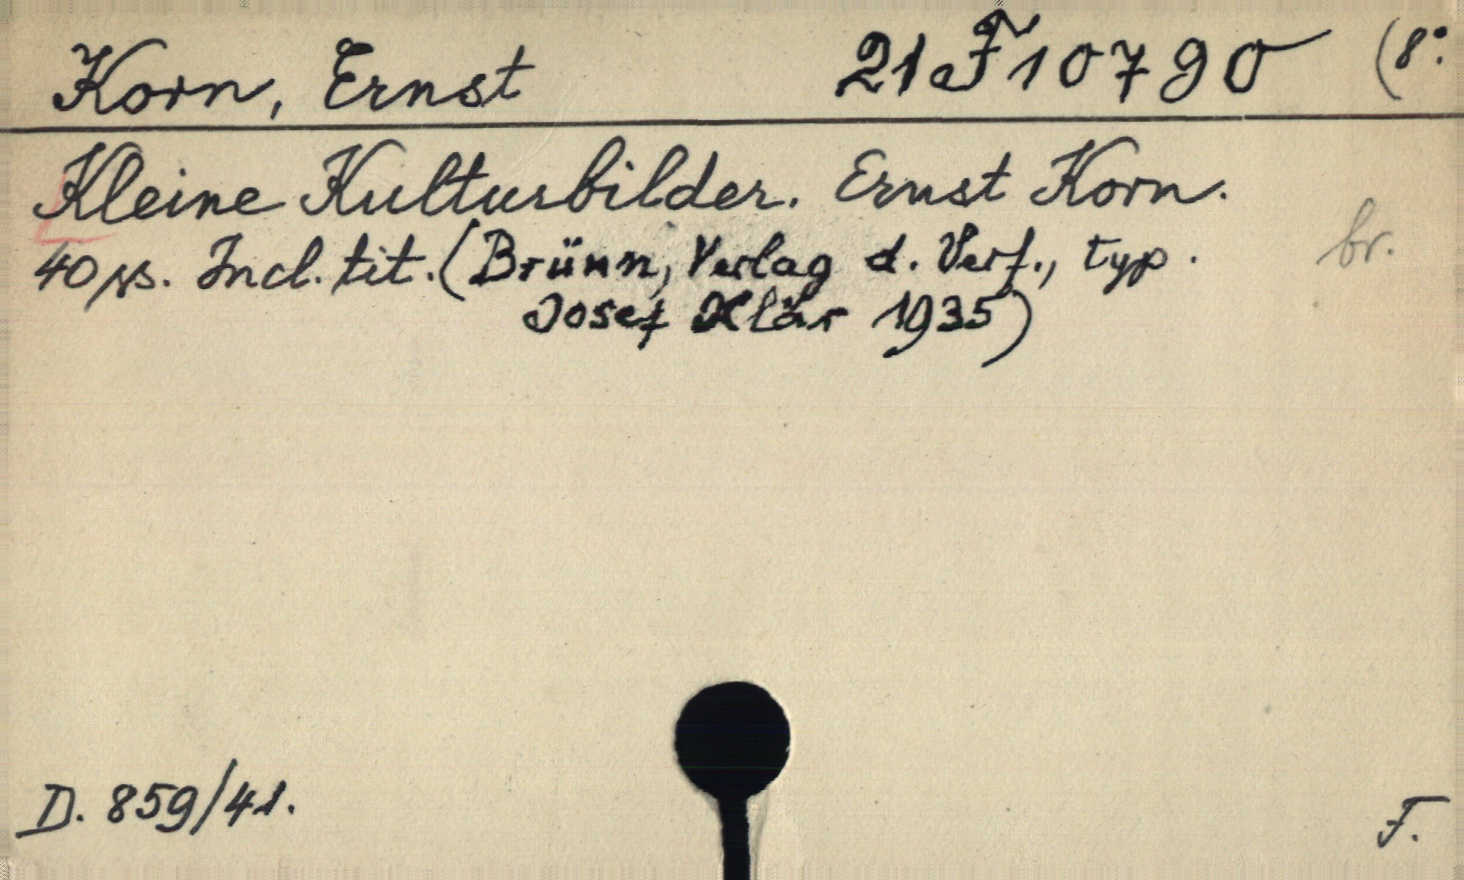 Korn, Ernst 21 F 10790 (8°.
Kleine Kulturbilder. Ernst Korn.
40 ss. Incl. tit. (Brünn, Verlag d. Verf., typ. br.
Josef Klär 1935)
D. 859/41. F.